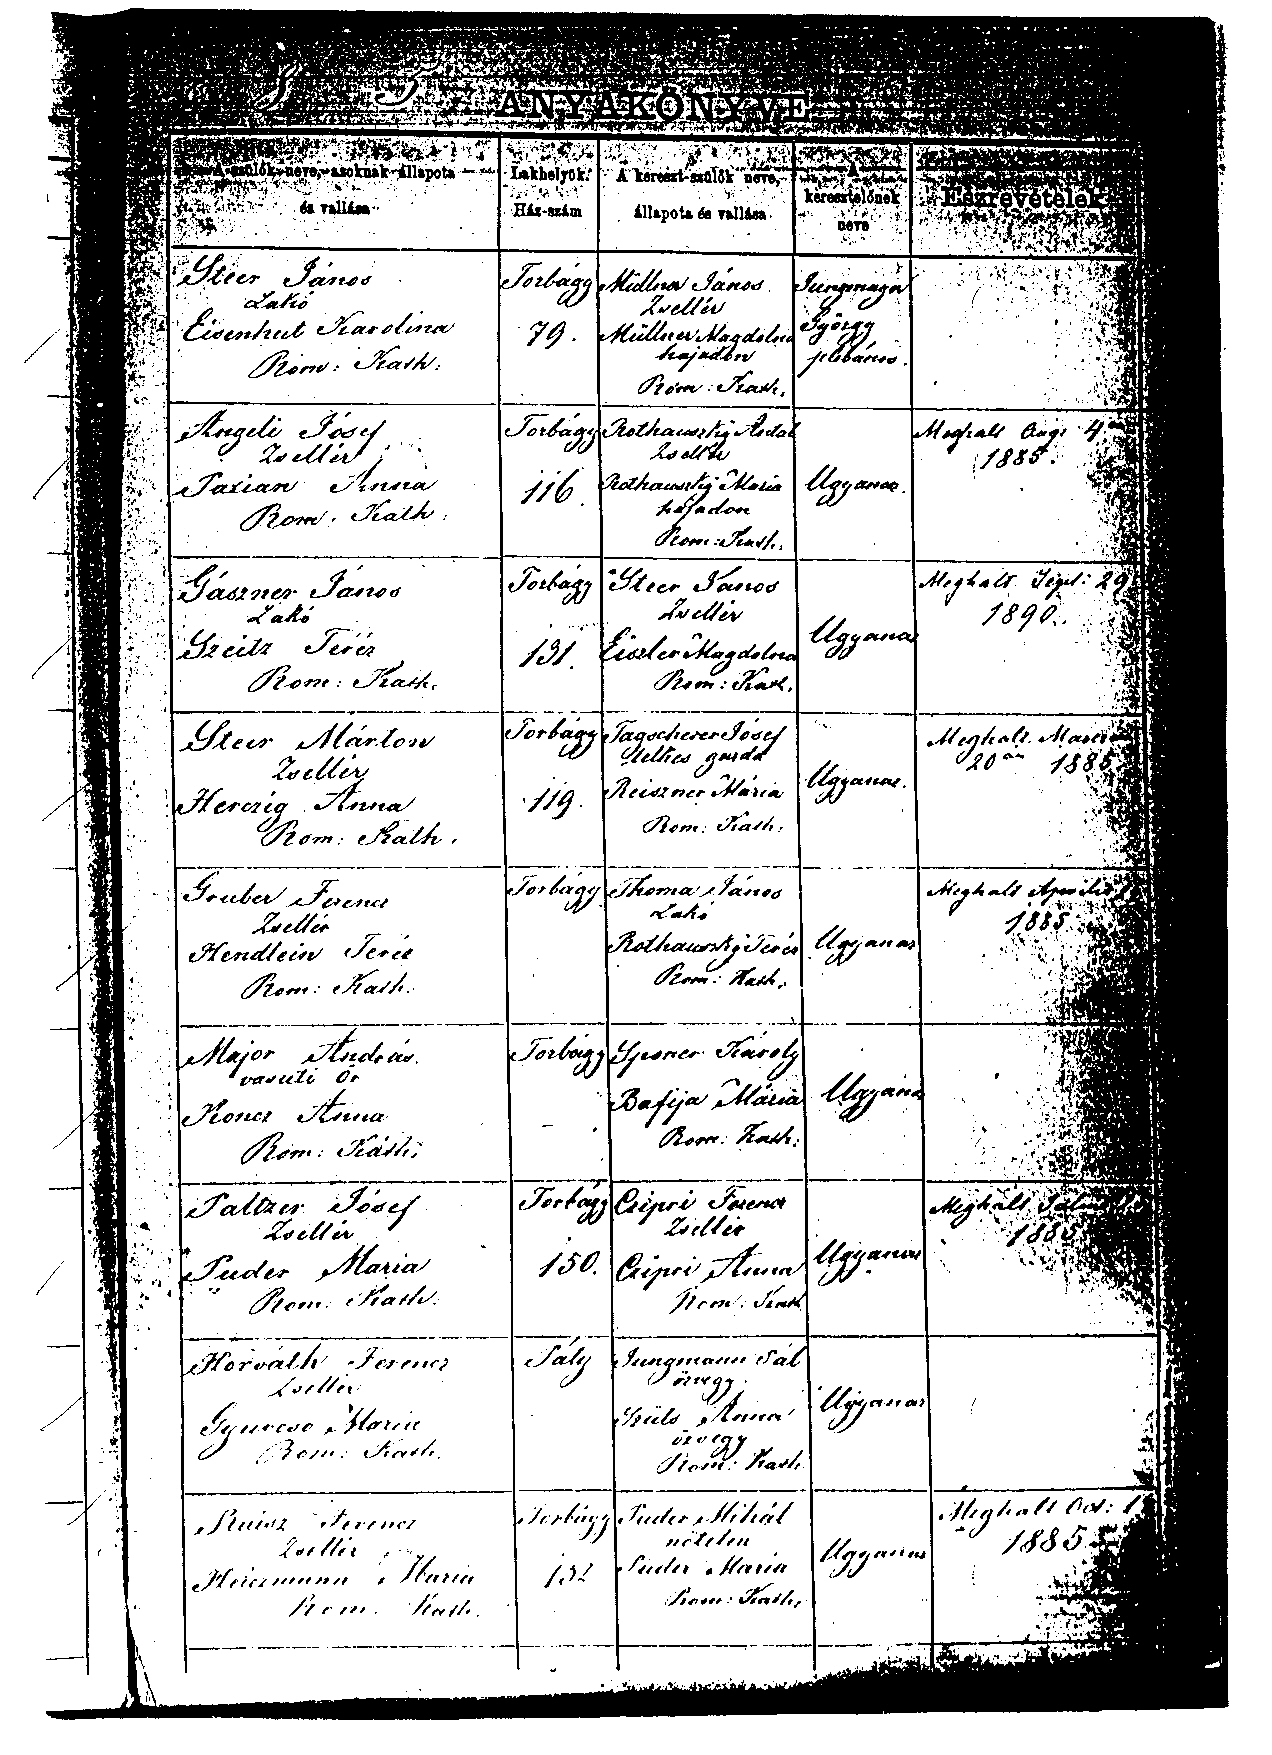 ANYAKÖNYVE
A szülők neve, azoknak állapota
és vallása
Lakhelyök.
Ház-szám
A kereszt-szülők neve,
állapota és vallása
A
keresztelőnek
neve
Észrevételek
Steer János
Lakó
Eisenhut Karolina
Rom: Kath:
Torbágy
79.
Müllner János
Zsellér
Müllner Magdolna
hajadon
Rom: Kath.
Jungmayer
György
plébános.
Angeli Jósef
Zsellér
Anna
Rom. Kath.
Torbágy
116.
Rothauszky Antal
Zsellér
Rothauszky Maria
hajadon
Rom: Kath.
Ugyanaz.
Meghalt Aug. 4.
1885.
Gászner János
Lakó
Szeitz Teréz
Rom: Kath.
Torbágy
131.
Steer János
Zsellér
Eiszler Magdolna
Rom: Kath.
Ugyanaz
Meghalt Sept: 29
1890.
Steer Márton
Zsellér
Herczig Anna
Rom: Kath.
Torbágy
119.
Tagscherer Jósef
telkes gazda
Reiszner Mária
Rom: Kath.
Ugyanaz.
Meghalt
20án 1885.
Gruber Ferencz
Zsellér
Hendlein Teréz
Rom: Kath.
Torbágy
Thoma János
Lakó
Rothauszky Teréz
Rom: Kath.
Ugyanaz
Meghalt Április
1885.
Major András
vasuti Őr
Koncz Anna
Rom: Kath:
Torbágy
Károly
Mária
Rom: Kath:
Ugyanaz
Paltzer Jósef
Zsellér
Tuder Maria
Rom: Kath.
Torbágy
150.
Czipri Ferencz
Zsellér
Czipri Anna
Rom: Kath
Ugyanaz
Meghalt
1885
Horváth Ferencz
Zsellér
Gyurcso Maria
Rom: Kath.
Pály
Jungmann Pál
özvegy
Anna
özvegy
Rom: Kath
Ugyanaz
Ferencz
Zsellér
Maria
Rom. Kath.
Torbágy
132
Tuder Mihál
nőtelen
Tuder Maria
Rom: Kath.
Ugyanaz
Meghalt Oct: 1
1885